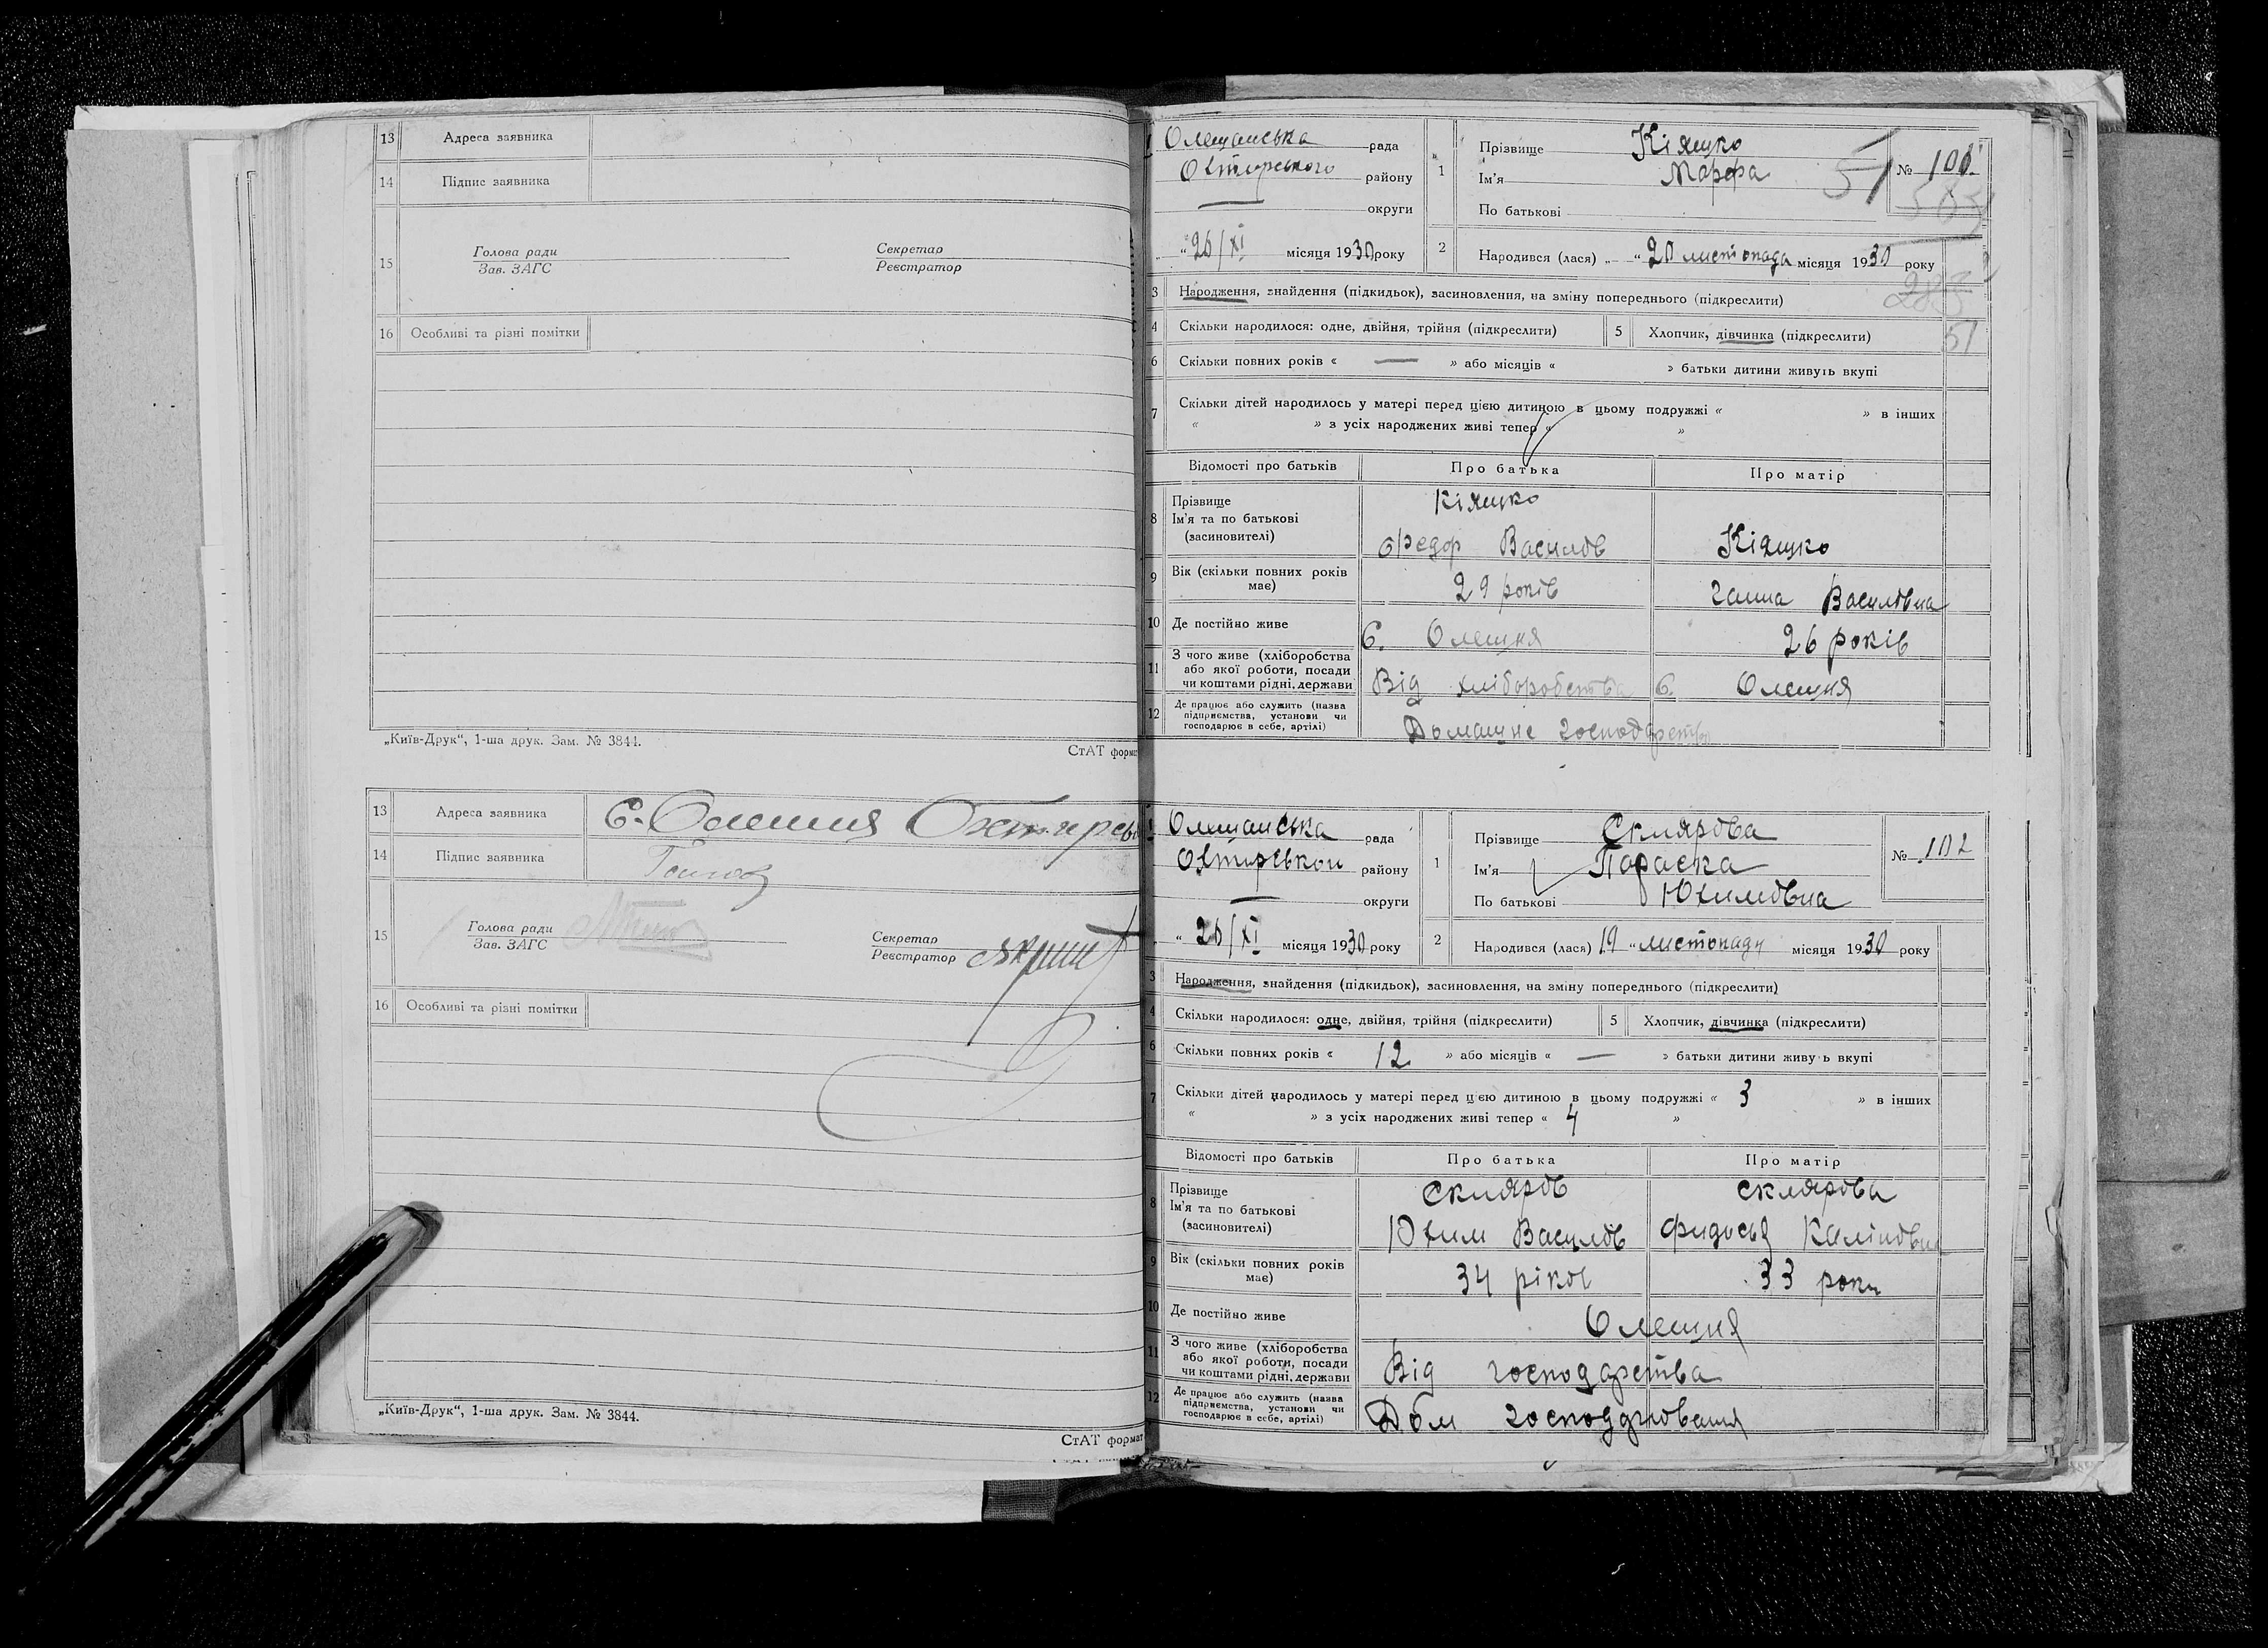 13 Адреса заявника
14 Підпис заявника
15 Голова ради Секретар
Зав. ЗАГС Реєстратор
16 Особливі та різні помітки
„Київ-Друк“, 1-ша друк. Зам. № 3844.
СтАТ форма
13 Адреса заявника С. Олешня
14 Підпис заявника
15 Голова ради Секретар
Зав. ЗАГС Реєстратор
16 Особливі та різні помітки
„Київ-Друк“, 1-ша друк. Зам. № 3844.
СтАТ формат
Олешанська рада
Охтирського району
— округи
„26/XI місяця 1930 року
1 Прізвище Кіяшко
Ім'я Марфа
По батькові
51
№ 101.
2 Народився (лася) „ “ 20 листопада місяця 1930 року
3 Народження, знайдення (підкидьок), засиновлення, на зміну попереднього (підкреслити)
4 Скільки народилося: одне, двійня, трійня (підкреслити) 5 Хлопчик, дівчинка (підкреслити)
51
6 Скільки повних років « — » або місяців « » батьки дитини живуть вкупі
7 Скільки дітей народилось у матері перед цією дитиною в цьому подружжі « » в інших
« » з усіх народжених живі тепер « »
Відомості про батьків Про батька Про матір
8 Прізвище Кіяшко
Ім'я та по батькові
(засиновителі) Федор Василів Кіяшко
9 Вік (скільки повних років має) 29 років Ганна Василівна
10 Де постійно живе С. Олешня 26 років
11 З чого живе (хліборобства
або якої роботи, посади
чи коштами рідні, держави Від хліборобства С. Олешня
12 Де працює або служить (назва
підприємства, установи чи
господарює в себе, артілі) Домашне господарство
Олешанська рада
Охтирськои району
— округи
„ 26/XI місяця 1930 року
1 Прізвище Склярова
Ім'я Параска
По батькові Юхимівна
№ 102
2 Народився (лася) 19 “ листопаду місяця 1930 року
3 Народження, знайдення (підкидьок), засиновлення, на зміну попереднього (підкреслити)
4 Скільки народилося: одне, двійня, трійня (підкреслити) 5 Хлопчик, дівчинка (підкреслити)
6 Скільки повних років « 12 » або місяців « — » батьки дитини живуть вкупі
7 Скільки дітей народилось у матері перед цією дитиною в цьому подружжі « 3 » в інших
« » з усіх народжених живі тепер « 4 »
Відомості про батьків Про батька Про матір
8 Прізвище Скляров Склярова
Ім'я та по батькові
(засиновителі) Юхим Василів Фидосья Калінівна
9 Вік (скільки повних років має) 34 рікої 33 роки
10 Де постійно живе Олешня
11 З чого живе (хліборобства
або якої роботи, посади
чи коштами рідні, держави Від господарства
12 Де працює або служить (назва
підприємства, установи чи
господарює в себе, артілі) Дом